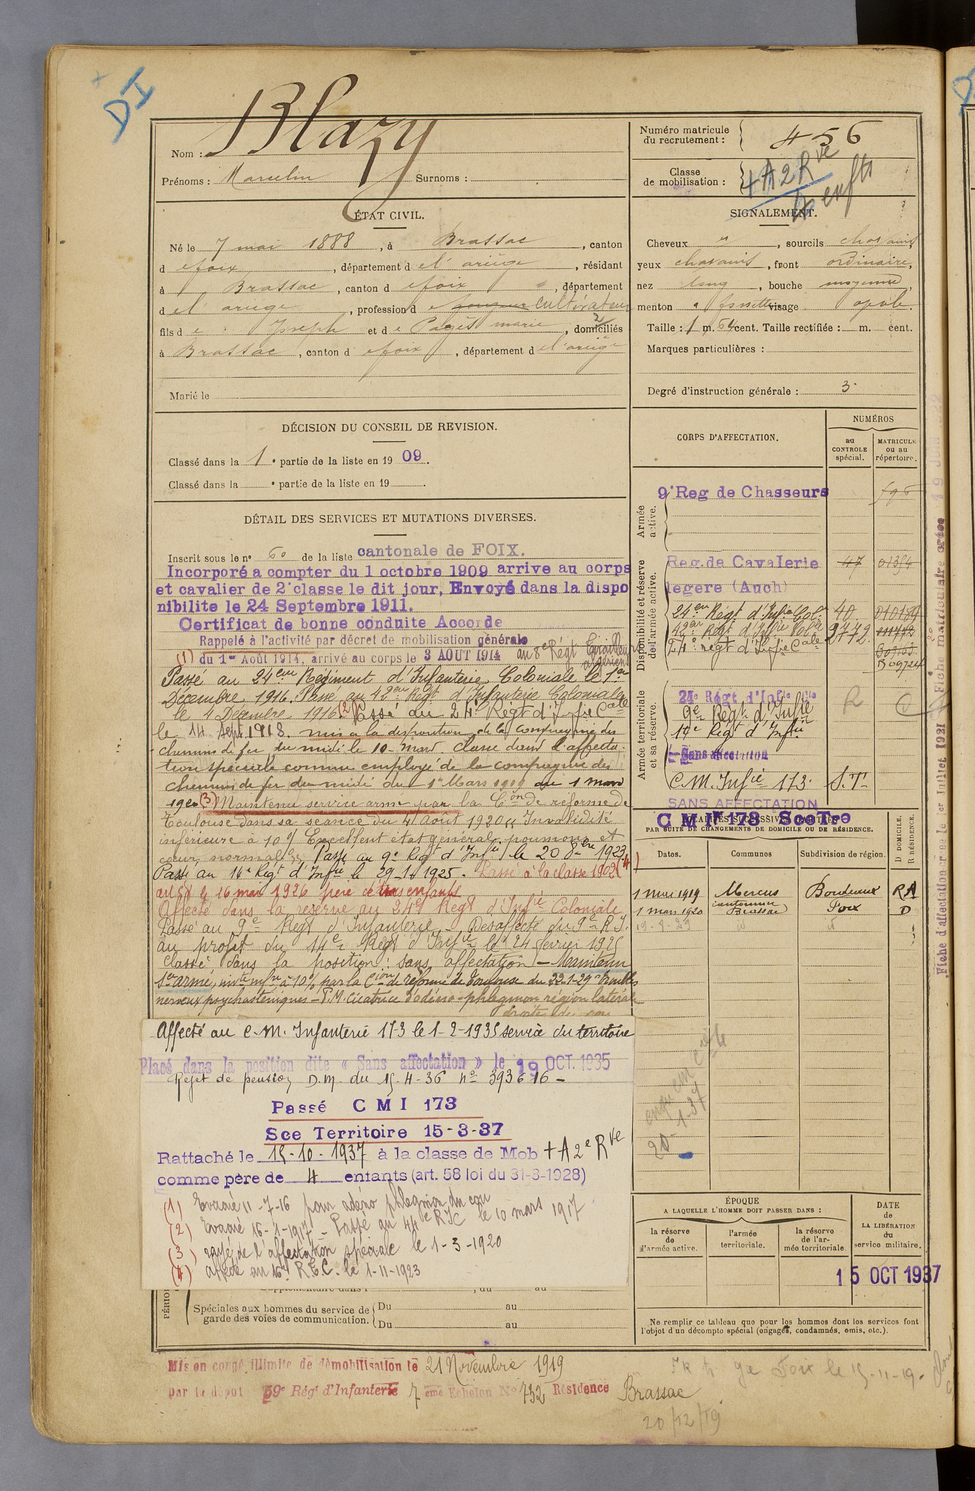 DI
Nom : Blazy
Prénoms : Marcelin Surnoms :
ÉTAT CIVIL.
Né le 7 mai 1888, à Brassac, canton
d e foix, département d e l'ariège, résidant
à Brassac, canton d e foix, département
d e l'ariège, profession d e cultivateur
fils d e Joseph et d e Pagès marie, domiciliés
à Brassac, canton d e foix, département d e l'ariège
Marié le
DÉCISION DU CONSEIL DE REVISION.
Classé dans la 1e partie de la liste en 1909.
Classé dans la e partie de la liste en 19
DÉTAIL DES SERVICES ET MUTATIONS DIVERSES.
Inscrit sous le n° 60 de la liste cantonale de FOIX.
Incorporé a compter du 1 octobre 1909 arrive au corps
et cavalier de 2e classe le dit jour, Envoyé dans la dispo
nibilite le 24 Septembre 1911.
Certificat de bonne conduite Accorde
Rappelé à l'activité par décret de mobilisation générale
(1) du 1er Août 1914, arrivé au corps le 3 AOUT 1914 au 8e Régt
Passé au 24eme Regiment d'Infanterie Coloniale le 1er
Décembre 1916. Passé au 42eme Regt d'Infanterie Coloniale
le 4 Décembre 1916 (2) Passé au 24e Regt d'Infie Cale
le 14 Sept. 1918. mis à la disposition de la compagnie des
chemins de fer du midi le 10 mars classé dans l'affecta-
tion spéciale comme employé de la compagnie des
chemins de fer du midi du 1er Mars 1919 au 1 mars
1920 (3) Maintenu service armé par la Cion de réforme de
Toulouse dans sa séance du 4 Août 1920 Invalidité
inférieure à 10% Excellent état général, poumons et
cœur normal. Passé au 9e Regt d'Infie le 20 1923
Passé au 14e Regt d'Infie le 29-1-1925. Passé à la classe 1902 (4)
au 58 le 16 mai 1926 père de trois enfants
Affecté dans la réserve au 24e Regt d'Infie Coloniale
Passé au 9e Regt d'Infanterie. Désaffecté du 9e R.I.
au profit du 14e Regt d'Infie le 24 février 1925
classé dans la position : sans affectation - Maintenu
Sce armé, invté infre à 10% par la Cion de réforme de Toulouse du 22-1-29 troubles
nerveux psychasteniques - P.M. cicatrice d'adéno-phlegmon région latérale
droite du cou
Affecté au C.M. Infanterie 173 le 1-2-1935 service du territoire
Placé dans la position dite « Sans affectation » le 19 OCT. 1935
Rejet de pension D.M. du 15-4-36 n° 393616 -
Passé C M I 173
Sce Territoire 15-3-37
Rattaché le 15-10-1937 à la classe de Mob + A 2e Rve
comme père de 4 enfants (art. 58 loi du 31-3-1928)
(1) Evacué 11-7-16 pour adéno phlegmon du cou
(2) Evacué 16-1-1917 - Passé au 44e RIC le 10 mars 1917
(3) rayé de l'affectation spéciale le 1-3-1920
(4) affecté au 16e R.T.C. le 1-11-1923
Spéciales aux hommes du service de garde des voies de communication.
Du au
Du au
Mis en congé illimité de démobilisation le 21 Novembre 1919
par le dépôt 59e Régt d'Infanterie 7eme Echelon N° 732 Résidence Brassac
20/12/19
Numéro matricule du recrutement : 456
Classe de mobilisation : + A 2 Rve
4 enfts
SIGNALEMENT.
Cheveux , sourcils chatains
yeux chatains, front ordinaire,
nez long, bouche moyenne,
menton à fossette visage ovale
Taille : 1 m. 64 cent. Taille rectifiée : m. cent.
Marques particulières :
Degré d'instruction générale : 3
CORPS D'AFFECTATION.
NUMÉROS
au CONTROLE spécial.
MATRICULE ou au répertoire.
Armée active.
9e Reg de Chasseurs
Disponibilité et réserve de l'armée active.
Reg. de Cavalerie 47
legere (Auch)
24eme Regt d'Infie Cole 40
42eme Regt d'Infie Cole 2772
24e regt d'Infie Cale
Armée territoriale et sa réserve.
24e Régt d'Infie
9e Regt d'Infie R
14e Regt d'Infie
Sans affectation
C.M. Infie 173. S.T-
SANS AFFECTATION
C M I 173 Sce Tre
PAR SUITE DE CHANGEMENTS DE DOMICILE OU DE RÉSIDENCE.
Dates. Communes Subdivision de région. D. DOMICILE. R. RÉSIDENCE.
1 Mars 1919 Mercus Bordeaux RA
1 Mars 1920 Brassac Foix D
ÉPOQUE
A LAQUELLE L'HOMME DOIT PASSER DANS :
la réserve de l'armée active. l'armée territoriale. la réserve de l'armée territoriale
DATE de LA LIBÉRATION du service militaire.
15 OCT 1937
Ne remplir ce tableau que pour les hommes dont les services font
l'objet d'un décompte spécial (engagés, condamnés, omis, etc.).